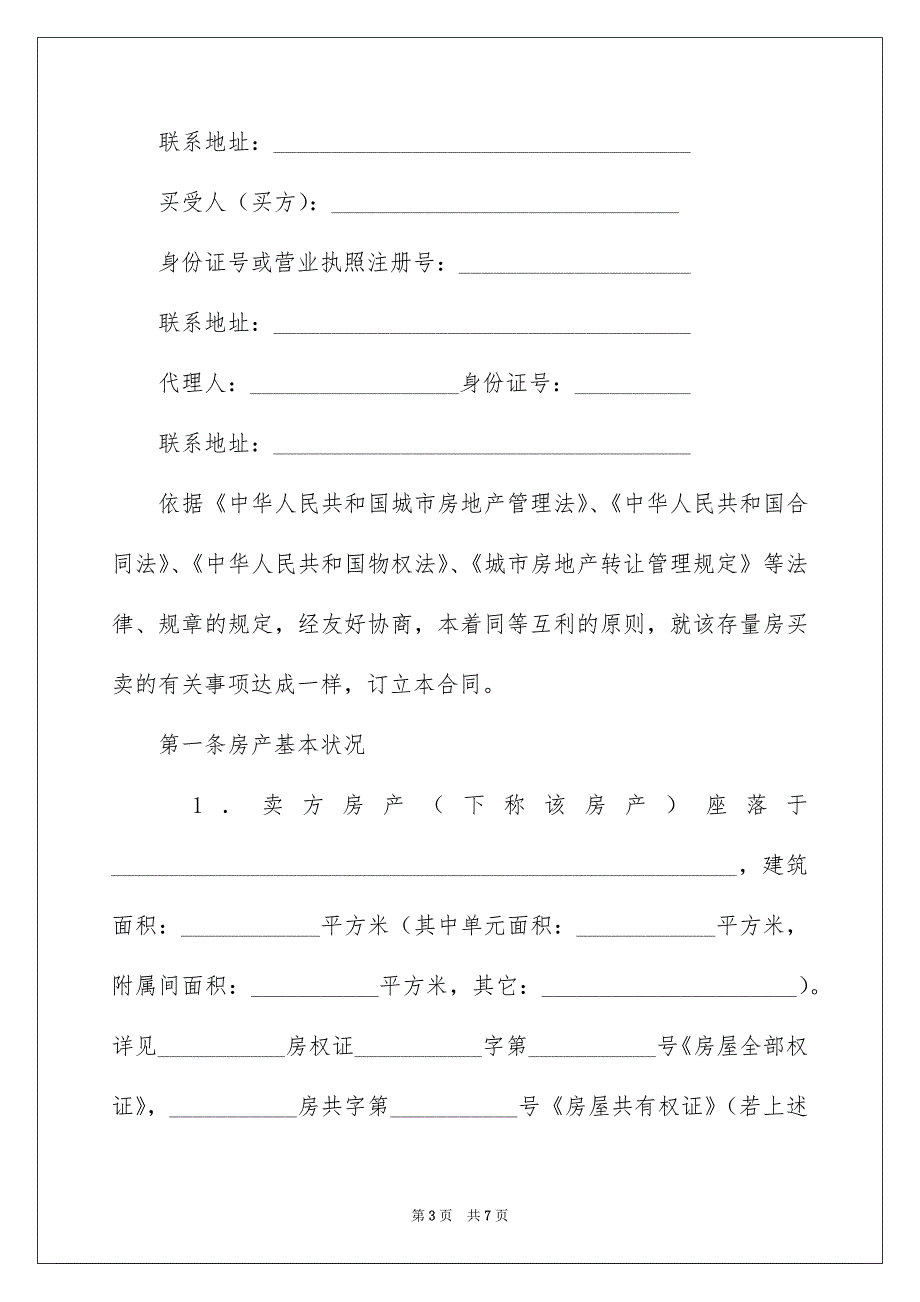 联系地址：____________________________________
买受人（买方）：______________________________
身份证号或营业执照注册号：____________________
联系地址：____________________________________
代理人：__________________身份证号：__________
联系地址：____________________________________
依据《中华人民共和国城市房地产管理法》、《中华人民共和国合
同法》、《中华人民共和国物权法》、《城市房地产转让管理规定》等法
律、规章的规定，经友好协商，本着同等互利的原则，就该存量房买
卖的有关事项达成一样，订立本合同。
第一条房产基本状况
1．卖方房产（下称该房产）座落于
______________________________________________________，建筑
面积：____________平方米（其中单元面积：____________平方米，
附属间面积：___________平方米，其它：______________________）。
详见___________房权证___________字第___________号《房屋全部权
证》，___________房共字第___________号《房屋共有权证》（若上述
第 3 页 共 7 页